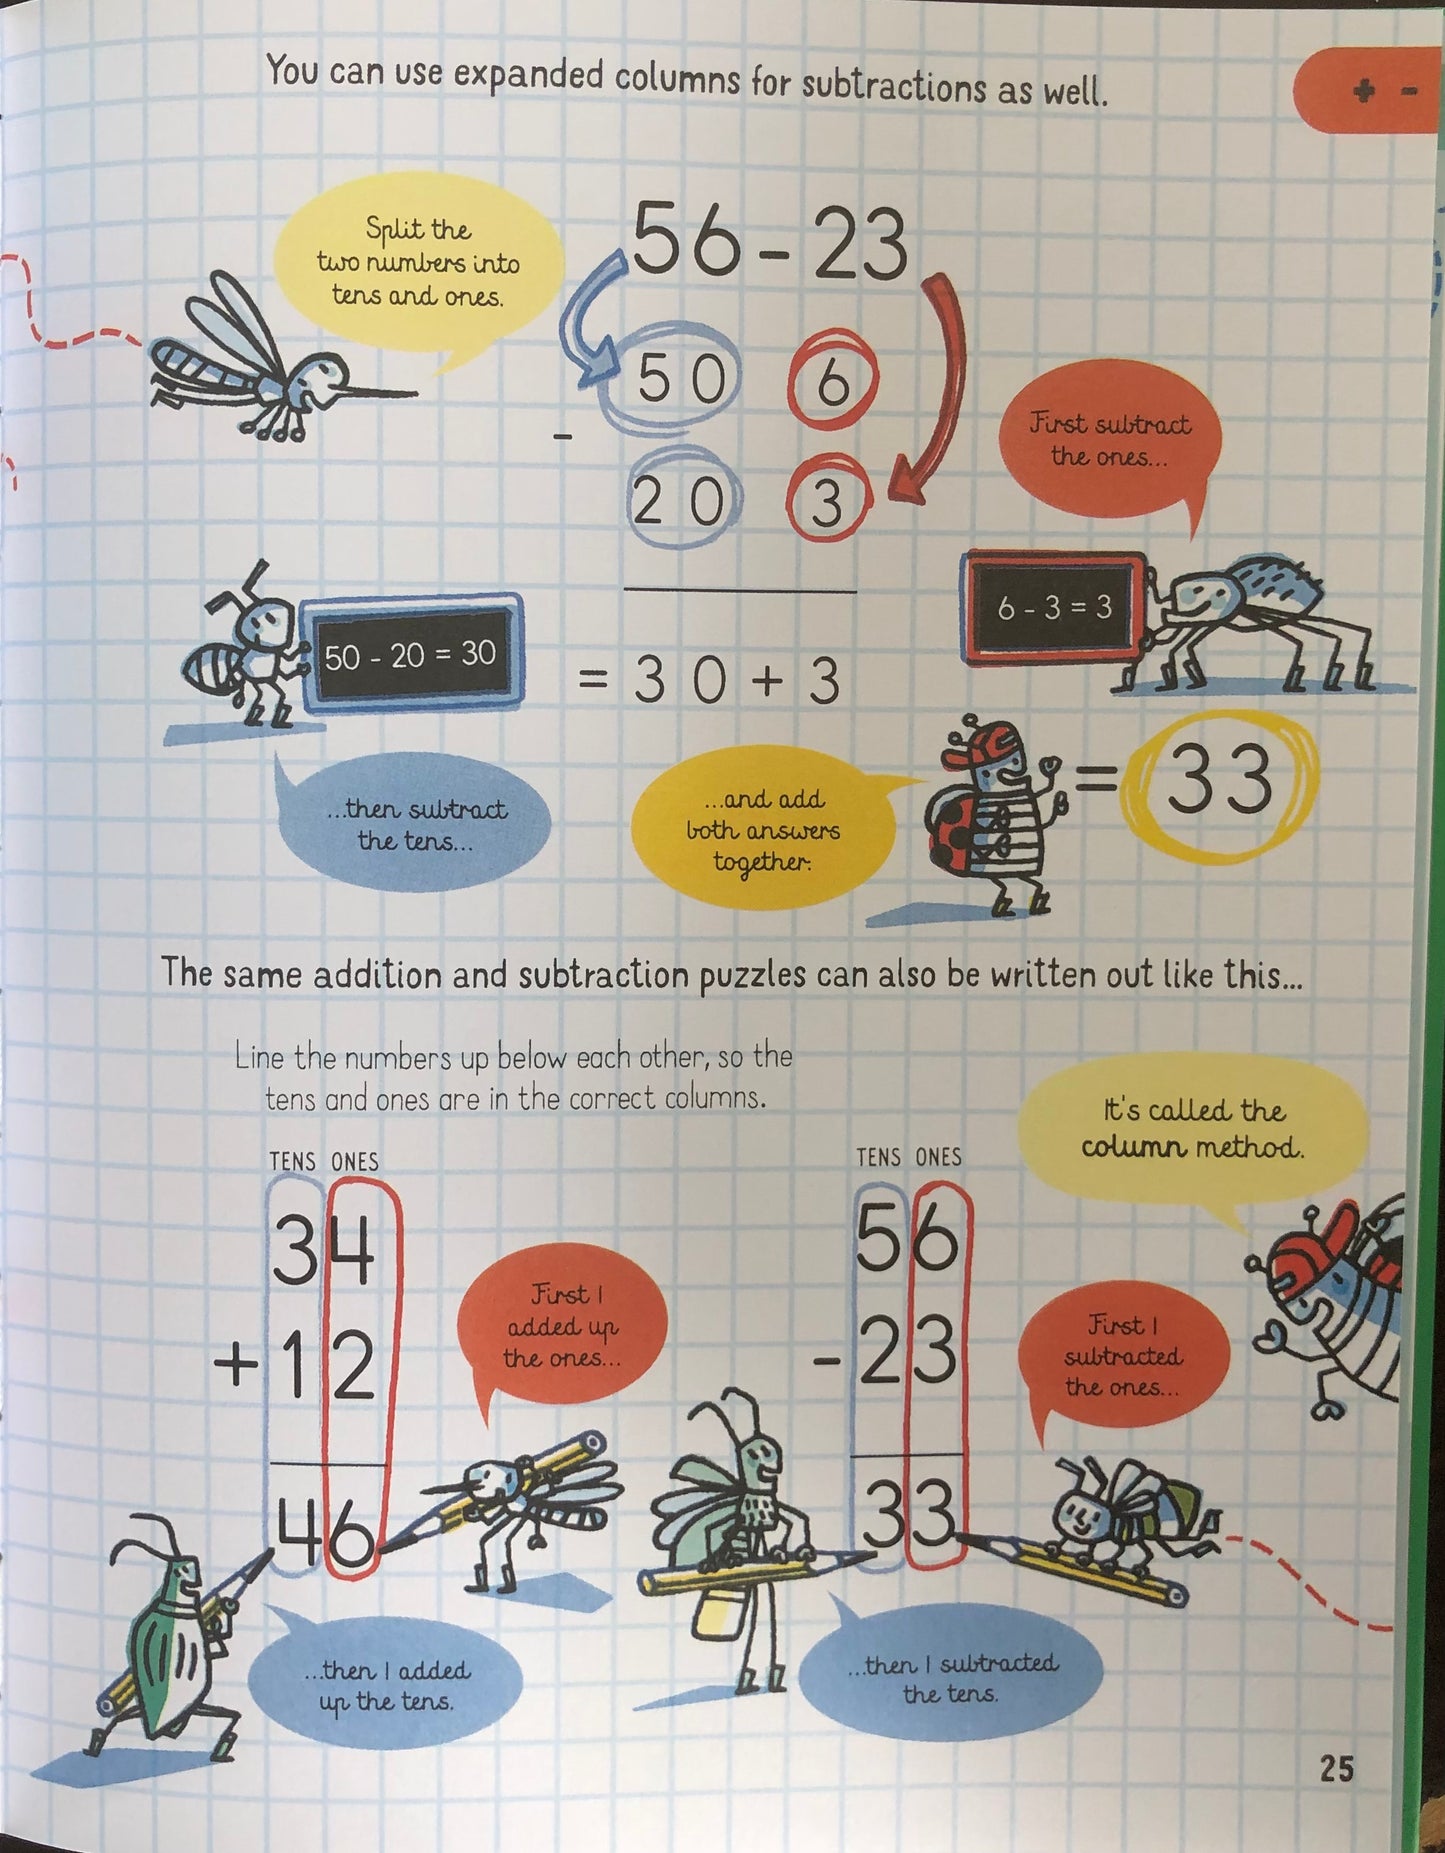 You can use expanded columns for subtractions as well.
+ -
Split the
two numbers into
tens and ones.
56 - 23
50 6
-
20 3
First subtract
the ones...
6 - 3 = 3
50 - 20 = 30
= 30 + 3
...then subtract
the tens...
...and add
both answers
together.
= 33
The same addition and subtraction puzzles can also be written out like this...
Line the numbers up below each other, so the
tens and ones are in the correct columns.
It's called the
column method.
TENS ONES
34
+ 12
46
First I
added up
the ones...
...then I added
up the tens.
TENS ONES
56
- 23
33
First I
subtracted
the ones...
...then I subtracted
the tens.
25